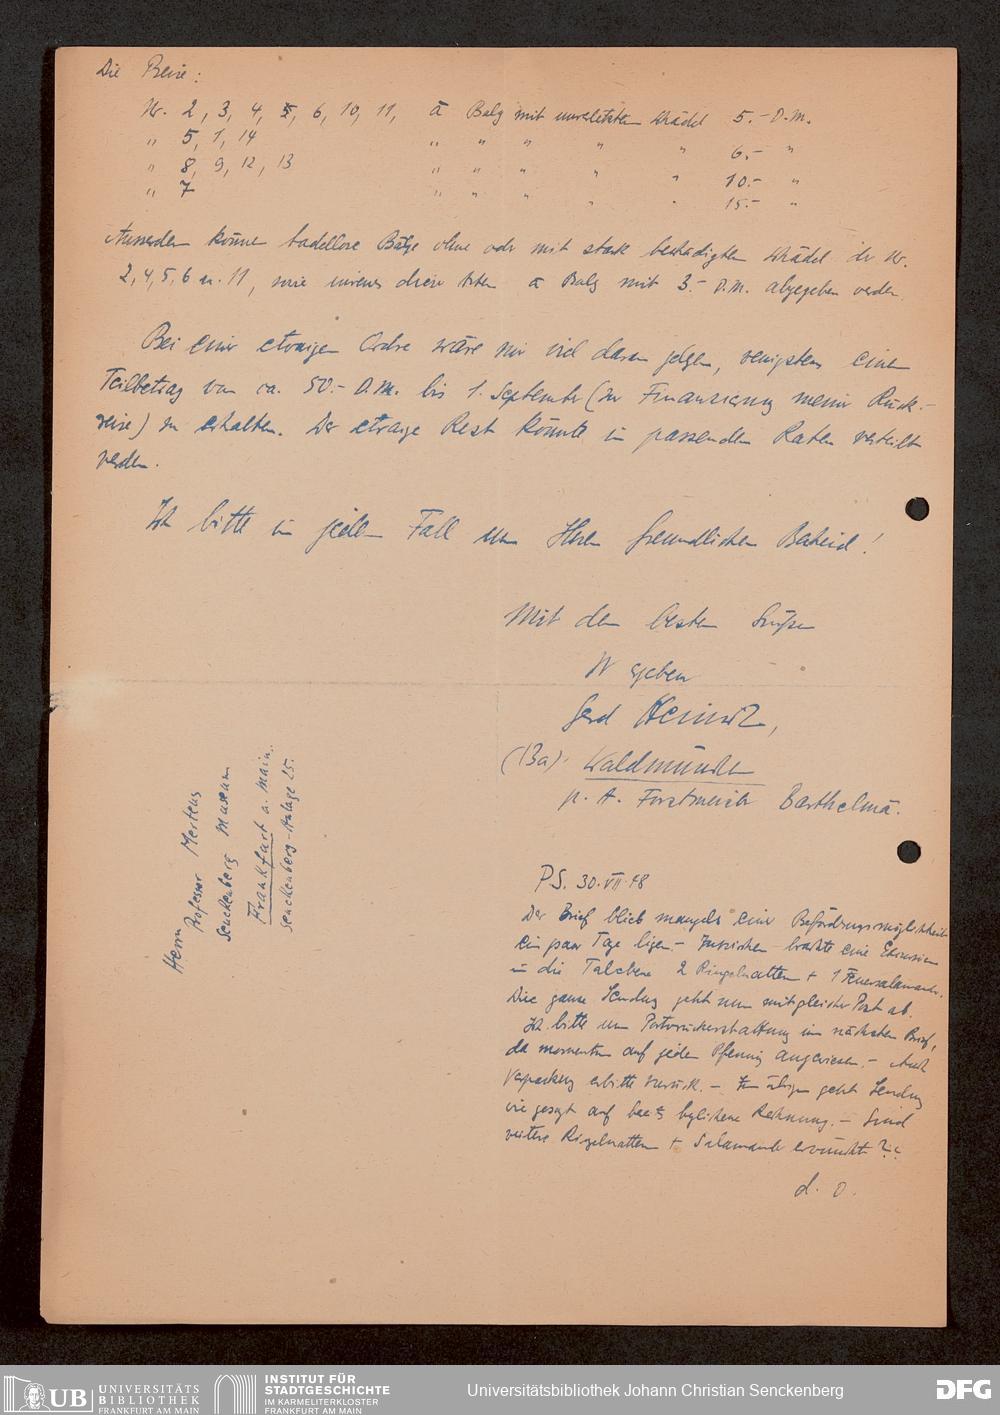 Die Preise:
Nr. 2, 3, 4, 5, 6, 10, 11, à Balg mit unverletzten Schädel 5.- D.M.
" 5, 1, 14 " " " " " 6.- "
" 8, 9, 12, 13 " " " " " 10.- "
" 7 " " " " " 15.- "
Ausserdem können tadellose Bälge ohne oder mit stark beschädigtem Schädel der Nr.
2, 4, 5, 6 u. 11, sowie dieser Arten à Balg mit 3.- D.M. abgegeben werden.
Bei einer etwaigen Ordre wäre mir viel daran gelegen, wenigstens einen
Teilbetrag von ca. 50.- D.M. bis 1. September (zur Finanzierung meiner Rück-
reise) zu erhalten. Der etwaige Rest könnte in passenden Raten verteilt
werden.
Ich bitte in jedem Fall um Ihren freundlichen Bescheid!
Mit den besten Grüßen
Ihr ergebener
Gerd Heinrich,
(13a) Waldmünchen
p. A. Forstmeister Barthelmä.
Herrn
Professor Mertens
Senckenberg Museum
Frankfurt a. Main.
Senckenberg-Anlage 25.
PS. 30.VII.48
Der Brief blieb mangels einer Beförderungsmöglichkeit
ein paar Tage liegen - Inzwischen brachte eine Exkursion
in die Talebene 2 Ringelnattern + 1 Feuersalamander.
Die ganze Sendung geht nun mit gleicher Post ab.
Ich bitte um Portorückerstattung im nächsten Brief,
da momentan auf jeden Pfennig angewiesen. - Auch
Verpackung erbitte zurück. - Im übrigen geht Sendung
wie gesagt auf Rechnung. - Sind
weitere Ringelnattern + Salamander erwünscht??
d. O.
UB UNIVERSITÄTS
BIBLIOTHEK
FRANKFURT AM MAIN
INSTITUT FÜR
STADTGESCHICHTE
IM KARMELITERKLOSTER
FRANKFURT AM MAIN
Universitätsbibliothek Johann Christian Senckenberg
DFG